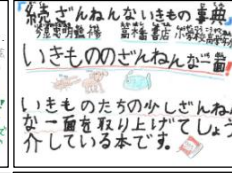 続ざんねんないきもの事典
高橋書店
いきもののざんねんな一面!
いきものたちの少しざんね
な一面を取り上げてしょう
介している本です。